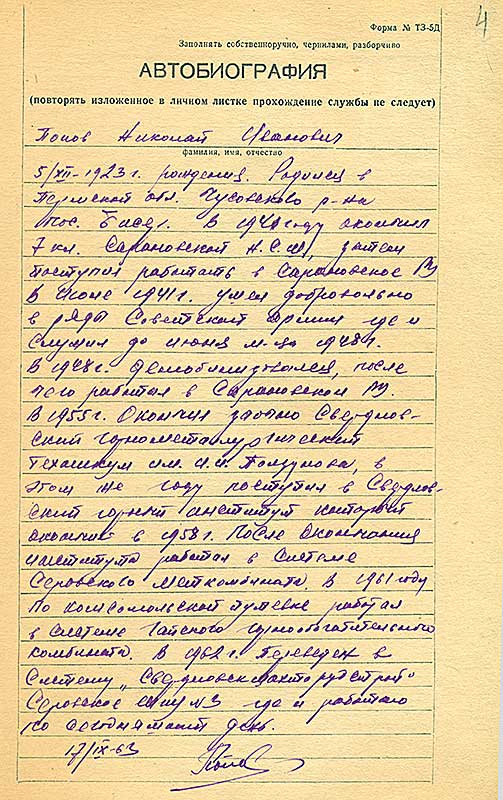 4
Форма № ТЗ-5Д
Заполнять собственноручно, чернилами, разборчиво
АВТОБИОГРАФИЯ
(повторять изложенное в личном листке прохождение службы не следует)
Попов Николай Иванович
фамилия, имя, отчество
5/XII-1923г. рождения. Родился в
Пермской обл. Чусовского р-на
пос. Бисер. В 1941 году окончил
7 кл. Сарановской Н.С.Ш, затем
поступил работать в Сарановское РУ
В Июле 1941г. ушел добровольно
в ряды Советской Армии где и
служил до июня м-ца 1948г.
В 1948г. демобилизовался, после
чего работал в Сарановском РУ.
В 1955г. Окончил заочно Свердлов-
ский горнометаллургический
техникум им. И.И. Ползунова, в
этом же году поступил в Свердлов-
ский горный институт который
окончил в 1958г. После окончания
института работал в системе
Серовского меткомбината. В 1961 году
по комсомольской путевке работал
в системе Гайского горнообогатительного
комбината. В 1962г. переведен в
систему „Свердловскшахторудстрой"
Серовское шпу №3 где и работаю
по сегодняшний день.
17/IX-63